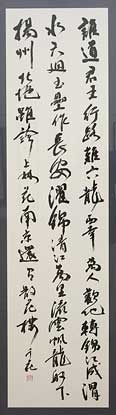 誰道君王行路難六龍西幸萬人歡地轉錦江成渭
水天迴玉壘作長安濯錦清江萬里流雲帆龍舸下
揚州北地雖誇上林苑南京還有散花樓